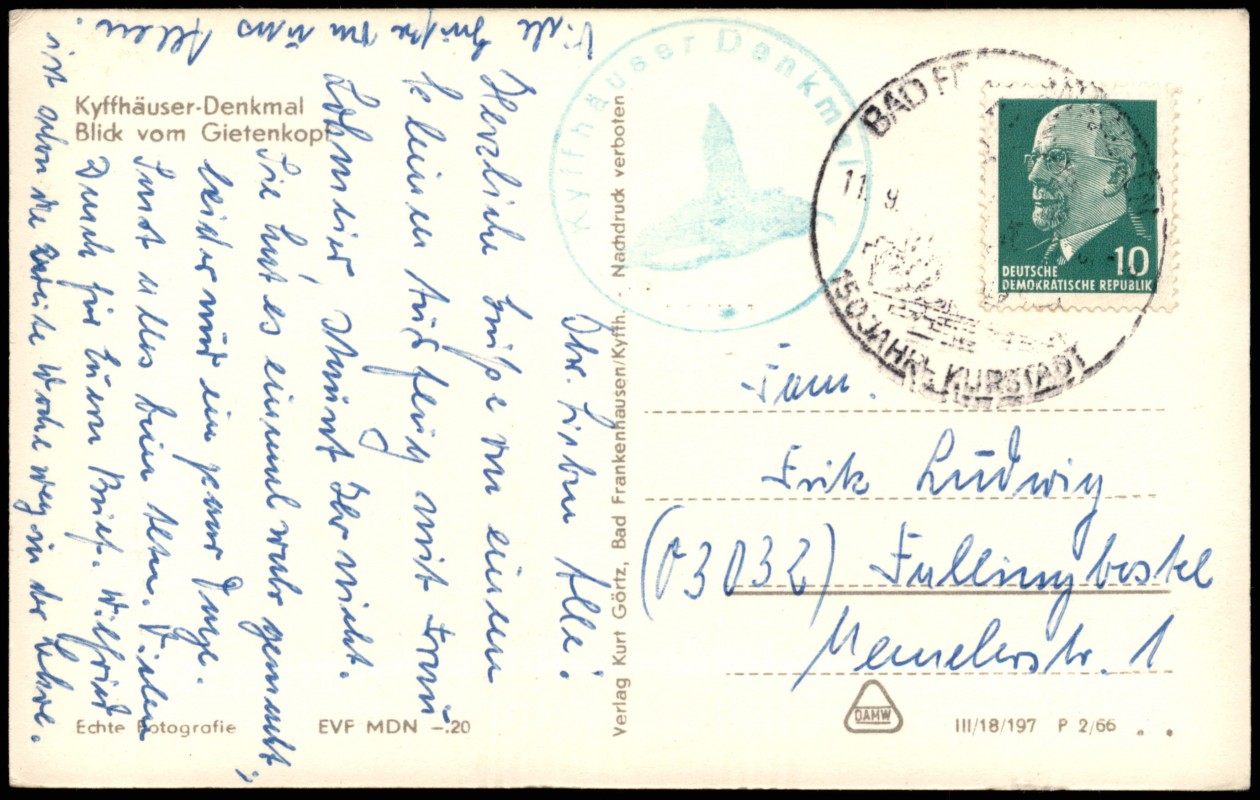 Kyffhäuser-Denkmal
Blick vom Gietenkopf
Ihr Lieben Alle!
Herzliche Grüße von einem
kleinen Ausflug mit Frau
Lohmeier könnt Ihr nicht.
Sie hat es einmal wahr gemacht,
leider nur ein paar Tage.
Sonst alles beim alten. Vielen
Dank für Euren Brief. Wilfried
ist schon die zweite Woche weg in der Lehre.
Viele Grüße von uns Allen.
Echte Fotografie
EVF MDN –.20
Verlag Kurt Görtz, Bad Frankenhausen/Kyffh. · Nachdruck verboten
Kyffhäuser Denkmal
BAD FR
11. 9.
150 JAHRE KURSTADT
10
DEUTSCHE
DEMOKRATISCHE REPUBLIK
Fam.
Erik Ludwig
(03032) Fallingbostel
Memelerstr. 1
DAMW
III/18/197 P 2/66